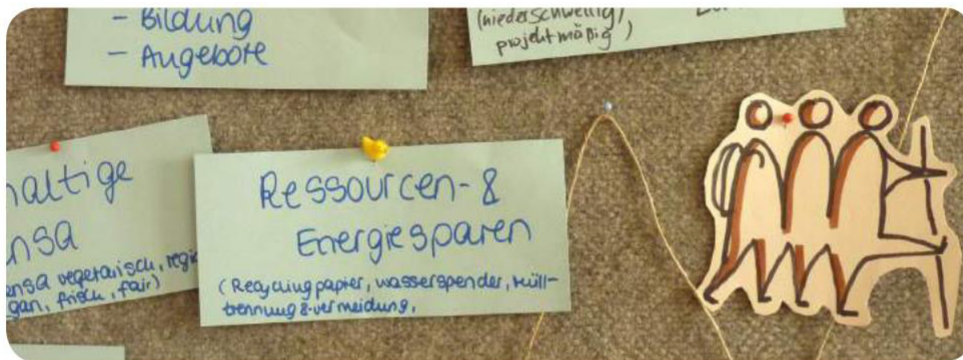 - Bildung
- Angebote
(niederschwellig,
projektmäßig)
haltige
nsa
ensa vegetarisch, regio
gan, frisch, fair)
Ressourcen- &
Energiesparen
(Recyclingpapier, wasserspender, Müll-
trennung & -vermeidung,